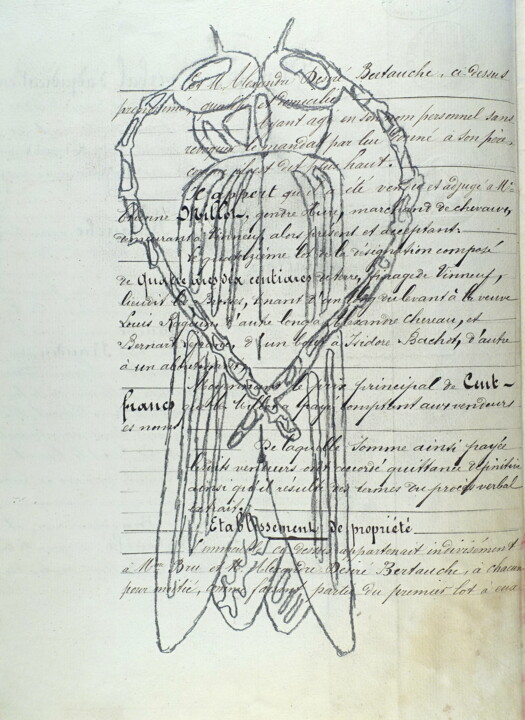 Et M. Alexandre Désiré Bertauche, ci-dessus
prénommé qualifié et domicilié
Ayant agi en son nom personnel sans
remiquer le mandat par lui donné à son
plus haut.
Il appert qu'il a été vendu et adjugé à Mr
Étienne gendre Huré, marchand de chevaux,
demeurant à Vinneuf, alors présent et acceptant.
Le quatorzième lot de la désignation composé
de Quatre ares dix centiares de terre, finage de Vinneuf,
lieudit les tenant d'un long du levant à la veuve
Louis d'autre long à Alexandre Chereau, et
Bernard d'un bout à Isidore Bachot, d'autre
à un
Moyennant le prix principal de Cent
francs payé comptant aux vendeurs
es noms
De laquelle somme ainsi payée
lesdits vendeurs ont accordé quittance définitive
ainsi qu'il résulte des termes du procès verbal
extrait.
Établissement de propriété
L'immeuble ci-dessus appartenait indivisément
à Mme Bru et M. Alexandre Désiré Bertauche, à chacun
pour moitié, comme faisant partie du premier lot à eux